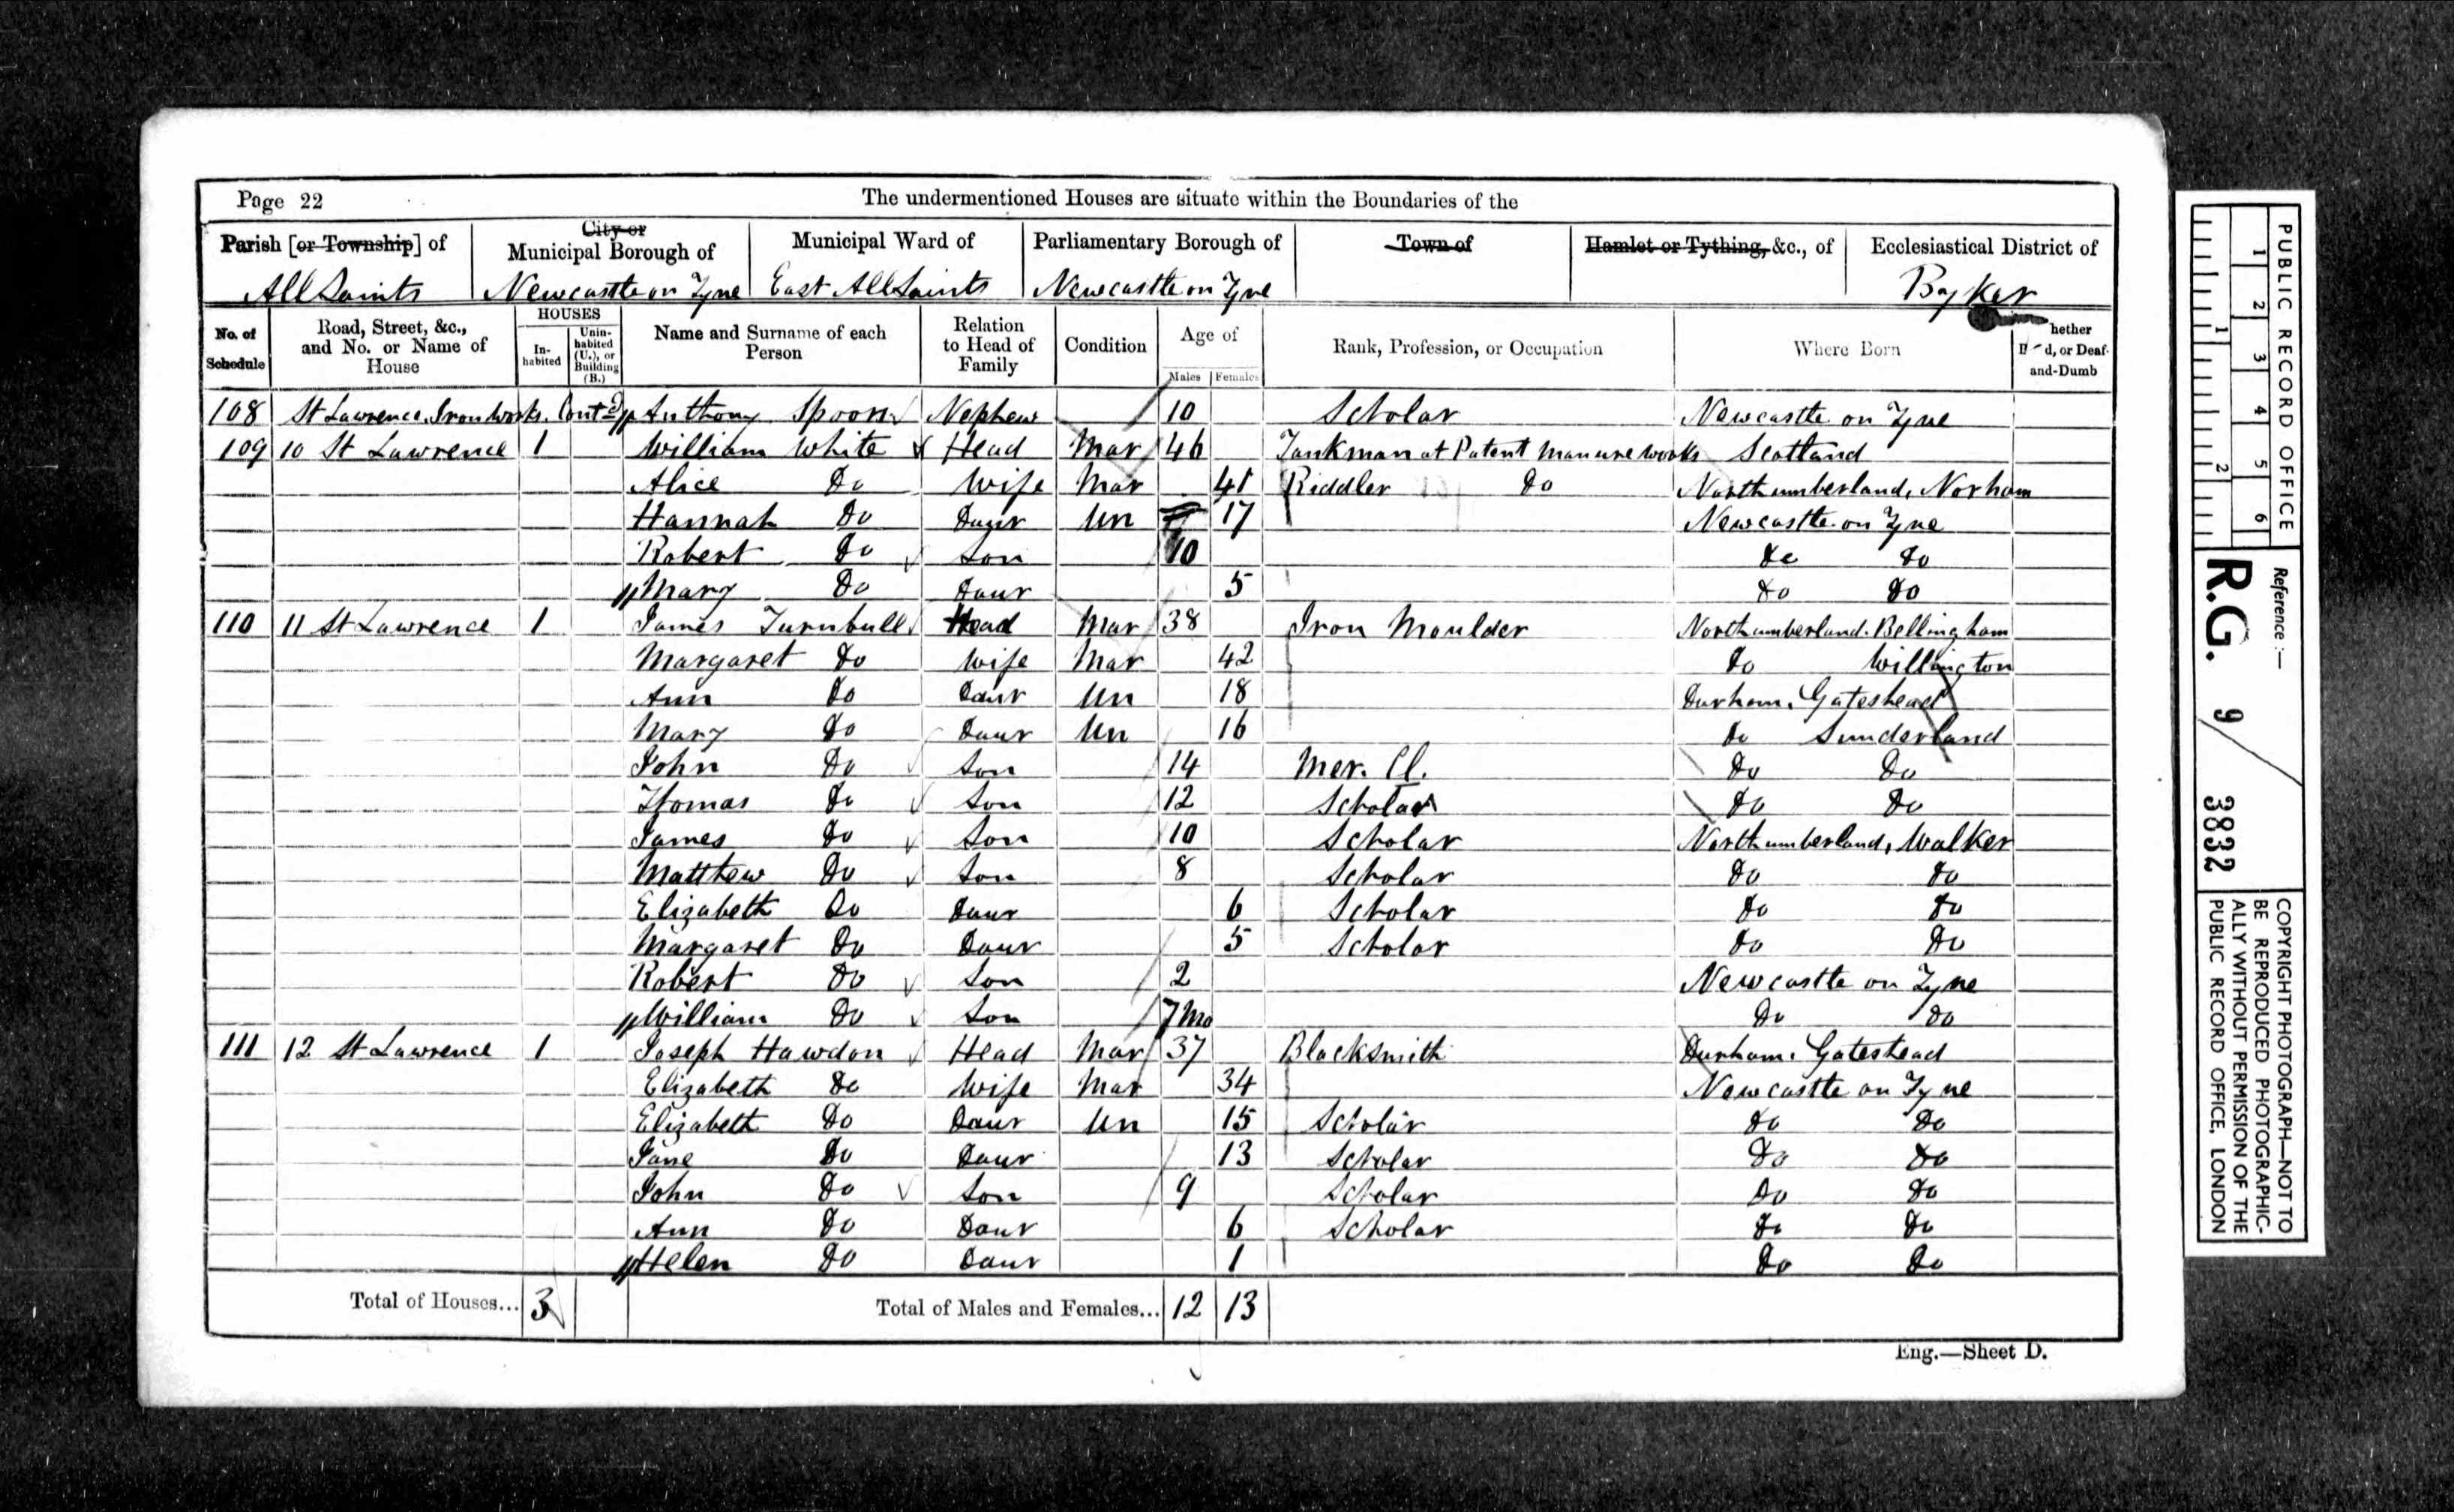 Page 22 The undermentioned Houses are situate within the Boundaries of the
Parish [or Township] of City or Municipal Borough of Municipal Ward of Parliamentary Borough of Town of Hamlet or Tything, &c., of Ecclesiastical District of
All Saints Newcastle on Tyne East All Saints Newcastle on Tyne Byker
No. of Schedule Road, Street, &c., and No. or Name of House HOUSES Inhabited Uninhabited (U.), or Building (B.) Name and Surname of each Person Relation to Head of Family Condition Age of Males Females Rank, Profession, or Occupation Where Born hether d, or Deaf-and-Dumb
108 St Lawrence Iron Works. Contd Anthony Spoors Nephew 10 Scholar Newcastle on Tyne
109 10 St Lawrence 1 William White Head Mar 46 Tankman at Patent Manure works Scotland
Alice Do Wife Mar 41 Riddler Do Northumberland, Norham
Hannah Do Daur Un 17 Newcastle on Tyne
Robert Do Son 10 Do Do
Mary Do Daur 5 Do Do
110 11 St Lawrence 1 James Turnbull Head Mar 38 Iron Moulder Northumberland. Bellingham
Margaret Do Wife Mar 42 Do Willington
Ann Do Daur Un 18 Durham. Gateshead
Mary Do Daur Un 16 Do Sunderland
John Do Son 14 Mer. Cl. Do Do
Thomas Do Son 12 Scholar Do Do
James Do Son 10 Scholar Northumberland, Walker
Matthew Do Son 8 Scholar Do Do
Elizabeth Do Daur 6 Scholar Do Do
Margaret Do Daur 5 Scholar Do Do
Robert Do Son 2 Newcastle on Tyne
William Do Son 7 Mo Do Do
111 12 St Lawrence 1 Joseph Hawdon Head Mar 37 Blacksmith Durham. Gateshead
Elizabeth Do Wife Mar 34 Newcastle on Tyne
Elizabeth Do Daur Un 15 Scholar Do Do
Jane Do Daur 13 Scholar Do Do
John Do Son 9 Scholar Do Do
Ann Do Daur 6 Scholar Do Do
Helen Do Daur 1 Do Do
Total of Houses... 3 Total of Males and Females... 12 13
Eng.—Sheet D.
PUBLIC RECORD OFFICE
1 2 3 4 5 6
1 2
Reference:—
R.G. 9/3832
COPYRIGHT PHOTOGRAPH—NOT TO
BE REPRODUCED PHOTOGRAPHIC-
ALLY WITHOUT PERMISSION OF THE
PUBLIC RECORD OFFICE, LONDON